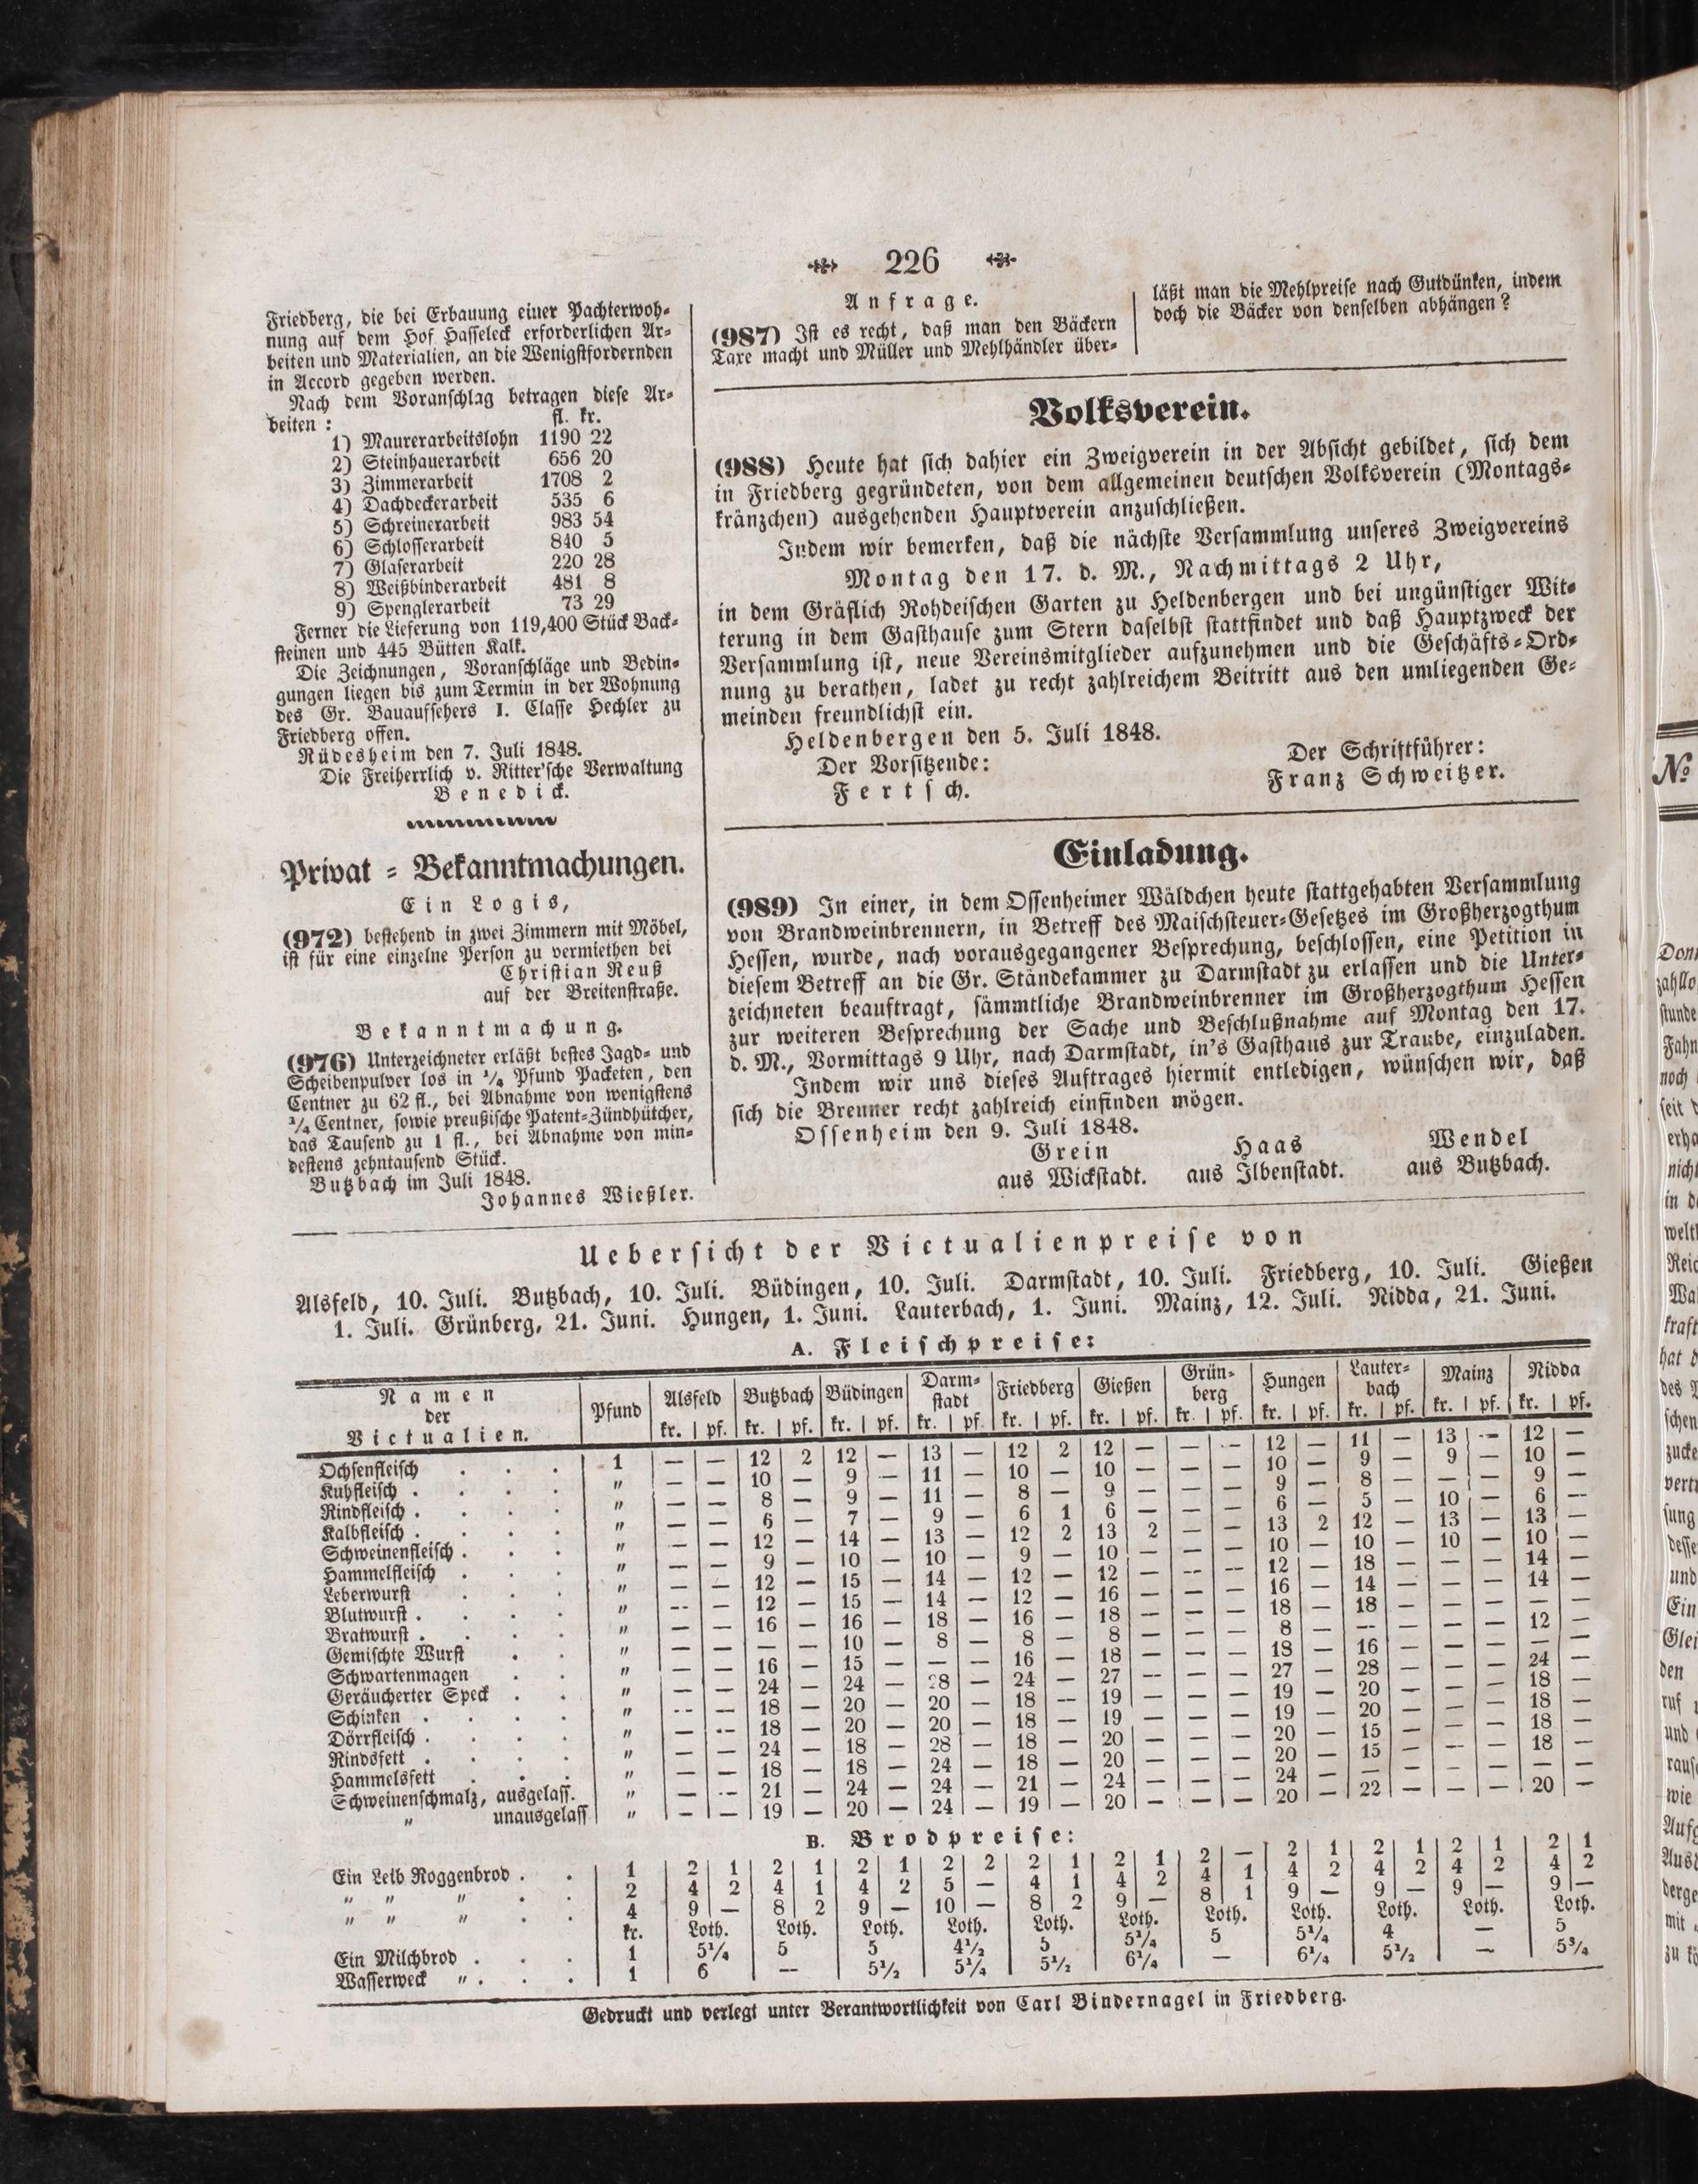 226
Friedberg, die bei Erbauung einer Pachterwoh-
nung auf dem Hof Hasseleck erforderlichen Ar-
beiten und Materialien, an die Wenigstfordernden
in Accord gegeben werden.
Nach dem Voranschlag betragen diese Ar-
beiten : fl. kr.
1) Maurerarbeitslohn 1190 22
2) Steinhauerarbeit 656 20
3) Zimmerarbeit 1708 2
4) Dachdeckerarbeit 535 6
5) Schreinerarbeit 983 54
6) Schlosserarbeit 840 5
7) Glaserarbeit 220 28
8) Weißbinderarbeit 481 8
9) Spenglerarbeit 73 29
Ferner die Lieferung von 119,400 Stück Back-
steinen und 445 Bütten Kalk.
Die Zeichnungen, Voranschläge und Bedin-
gungen liegen bis zum Termin in der Wohnung
des Gr. Bauaufsehers I. Classe Hechler zu
Friedberg offen.
Rüdesheim den 7. Juli 1848.
Die Freiherrlich v. Ritter'sche Verwaltung
Benedick.
Privat - Bekanntmachungen.
Ein Logis,
(972) bestehend in zwei Zimmern mit Möbel,
ist für eine einzelne Person zu vermiethen bei
Christian Reuß
auf der Breitenstraße.
Bekanntmachung.
(976) Unterzeichneter erläßt bestes Jagd- und
Scheibenpulver los in 1/4 Pfund Packeten, den
Centner zu 62 fl., bei Abnahme von wenigstens
1/4 Centner, sowie preußische Patent-Zündhütcher,
das Tausend zu 1 fl., bei Abnahme von min-
destens zehntausend Stück.
Butzbach im Juli 1848.
Johannes Wießler.
Anfrage.
(987) Ist es recht, daß man den Bäckern
Taxe macht und Müller und Mehlhändler über-
läßt man die Mehlpreise nach Gutdünken, indem
doch die Bäcker von denselben abhängen?
Volksverein.
(988) Heute hat sich dahier ein Zweigverein in der Absicht gebildet, sich dem
in Friedberg gegründeten, von dem allgemeinen deutschen Volksverein (Montags-
kränzchen) ausgehenden Hauptverein anzuschließen.
Indem wir bemerken, daß die nächste Versammlung unseres Zweigvereins
Montag den 17. d. M., Nachmittags 2 Uhr,
in dem Gräflich Rohdeischen Garten zu Heldenbergen und bei ungünstiger Wit-
terung in dem Gasthause zum Stern daselbst stattfindet und daß Hauptzweck der
Versammlung ist, neue Vereinsmitglieder aufzunehmen und die Geschäfts-Ord-
nung zu berathen, ladet zu recht zahlreichem Beitritt aus den umliegenden Ge-
meinden freundlichst ein.
Heldenbergen den 5. Juli 1848.
Der Vorsitzende: Der Schriftführer:
Fertsch. Franz Schweitzer.
Einladung.
(989) In einer, in dem Ossenheimer Wäldchen heute stattgehabten Versammlung
von Brandweinbrennern, in Betreff des Maischsteuer-Gesetzes im Großherzogthum
Hessen, wurde, nach vorausgegangener Besprechung, beschlossen, eine Petition in
diesem Betreff an die Gr. Ständekammer zu Darmstadt zu erlassen und die Unter-
zeichneten beauftragt, sämmtliche Brandweinbrenner im Großherzogthum Hessen
zur weiteren Besprechung der Sache und Beschlußnahme auf Montag den 17.
d. M., Vormittags 9 Uhr, nach Darmstadt, in's Gasthaus zur Traube, einzuladen.
Indem wir uns dieses Auftrages hiermit entledigen, wünschen wir, daß
sich die Brenner recht zahlreich einfinden mögen.
Ossenheim den 9. Juli 1848.
Grein Haas Wendel
aus Wickstadt. aus Ilbenstadt. aus Butzbach.
Uebersicht der Victualienpreise von
Alsfeld, 10. Juli. Butzbach, 10. Juli. Büdingen, 10. Juli. Darmstadt, 10. Juli. Friedberg, 10. Juli. Gießen
1. Juli. Grünberg, 21. Juni. Hungen, 1. Juni. Lauterbach, 1. Juni. Mainz, 12. Juli. Nidda, 21. Juni.
A. Fleischpreise:
Namen der Victualien. Pfund Alsfeld Butzbach Büdingen Darm-stadt Friedberg Gießen Grün-berg Hungen Lauter-bach Mainz Nidda
kr. pf. kr. pf. kr. pf. kr. pf. kr. pf. kr. pf. kr. pf. kr. pf. kr. pf. kr. pf. kr. pf.
Ochsenfleisch . . . 1 — — 12 2 12 — 13 — 12 2 12 — — — 12 — 11 — 13 — 12 —
Kuhfleisch . . . . " — — 10 — 9 — 11 — 10 — 10 — — — 10 — 9 — 9 — 10 —
Rindfleisch . . . . " — — 8 — 9 — 11 — 8 — 9 — — — 9 — 8 — — — 9 —
Kalbfleisch . . . . " — — 6 — 7 — 9 — 6 1 6 — — — 6 — 5 — 10 — 6 —
Schweinenfleisch . . . " — — 12 — 14 — 13 — 12 2 13 2 — — 13 2 12 — 13 — 13 —
Hammelfleisch . . . " — — 9 — 10 — 10 — 9 — 10 — — — 10 — 10 — 10 — 10 —
Leberwurst . . . " — — 12 — 15 — 14 — 12 — 12 — — — 12 — 18 — — — 14 —
Blutwurst . . . . " — — 12 — 15 — 14 — 12 — 16 — — — 16 — 14 — — — 14 —
Bratwurst . . . . " — — 16 — 16 — 18 — 16 — 18 — — — 18 — 18 — — — — —
Gemischte Wurst . . " — — — — 10 — 8 — 8 — 8 — — — 8 — — — — — 12 —
Schwartenmagen . . " — — 16 — 15 — — — 16 — 18 — — — 18 — 16 — — — — —
Geräucherter Speck . . " — — 24 — 24 — 28 — 24 — 27 — — — 27 — 28 — — — 24 —
Schinken . . . . " — — 18 — 20 — 20 — 18 — 19 — — — 19 — 20 — — — 18 —
Dörrfleisch . . . . " — — 18 — 20 — 20 — 18 — 19 — — — 19 — 20 — — — 18 —
Rindsfett . . . . " — — 24 — 18 — 28 — 18 — 20 — — — 20 — 15 — — — 18 —
Hammelsfett . . . " — — 18 — 18 — 24 — 18 — 20 — — — 20 — 15 — — — 18 —
Schweinenschmalz, ausgelass. " — — 21 — 24 — 24 — 21 — 24 — — — 24 — — — — — — —
" unausgelass " — — 19 — 20 — 24 — 19 — 20 — — — 20 — 22 — — — 20 —
B. Brodpreise:
Ein Leib Roggenbrod . . 1 2 1 2 1 2 1 2 2 2 1 2 1 2 — 2 1 2 1 2 1 2 1
" " " . . 2 4 2 4 1 4 2 5 — 4 1 4 2 4 1 4 2 4 2 4 2 4 2
" " " . . 4 9 — 8 2 9 — 10 — 8 2 9 — 8 1 9 — 9 — 9 — 9 —
kr. Loth. Loth. Loth. Loth. Loth. Loth. Loth. Loth. Loth. Loth. Loth.
Ein Milchbrod . . . 1 5 1/4 5 5 4 1/2 5 5 1/4 5 5 1/4 4 — 5
Wasserweck " . . . 1 6 — 5 1/2 5 1/4 5 1/2 6 1/4 — 6 1/4 5 1/2 — 5 3/4
Gedruckt und verlegt unter Verantwortlichkeit von Carl Bindernagel in Friedberg.
№